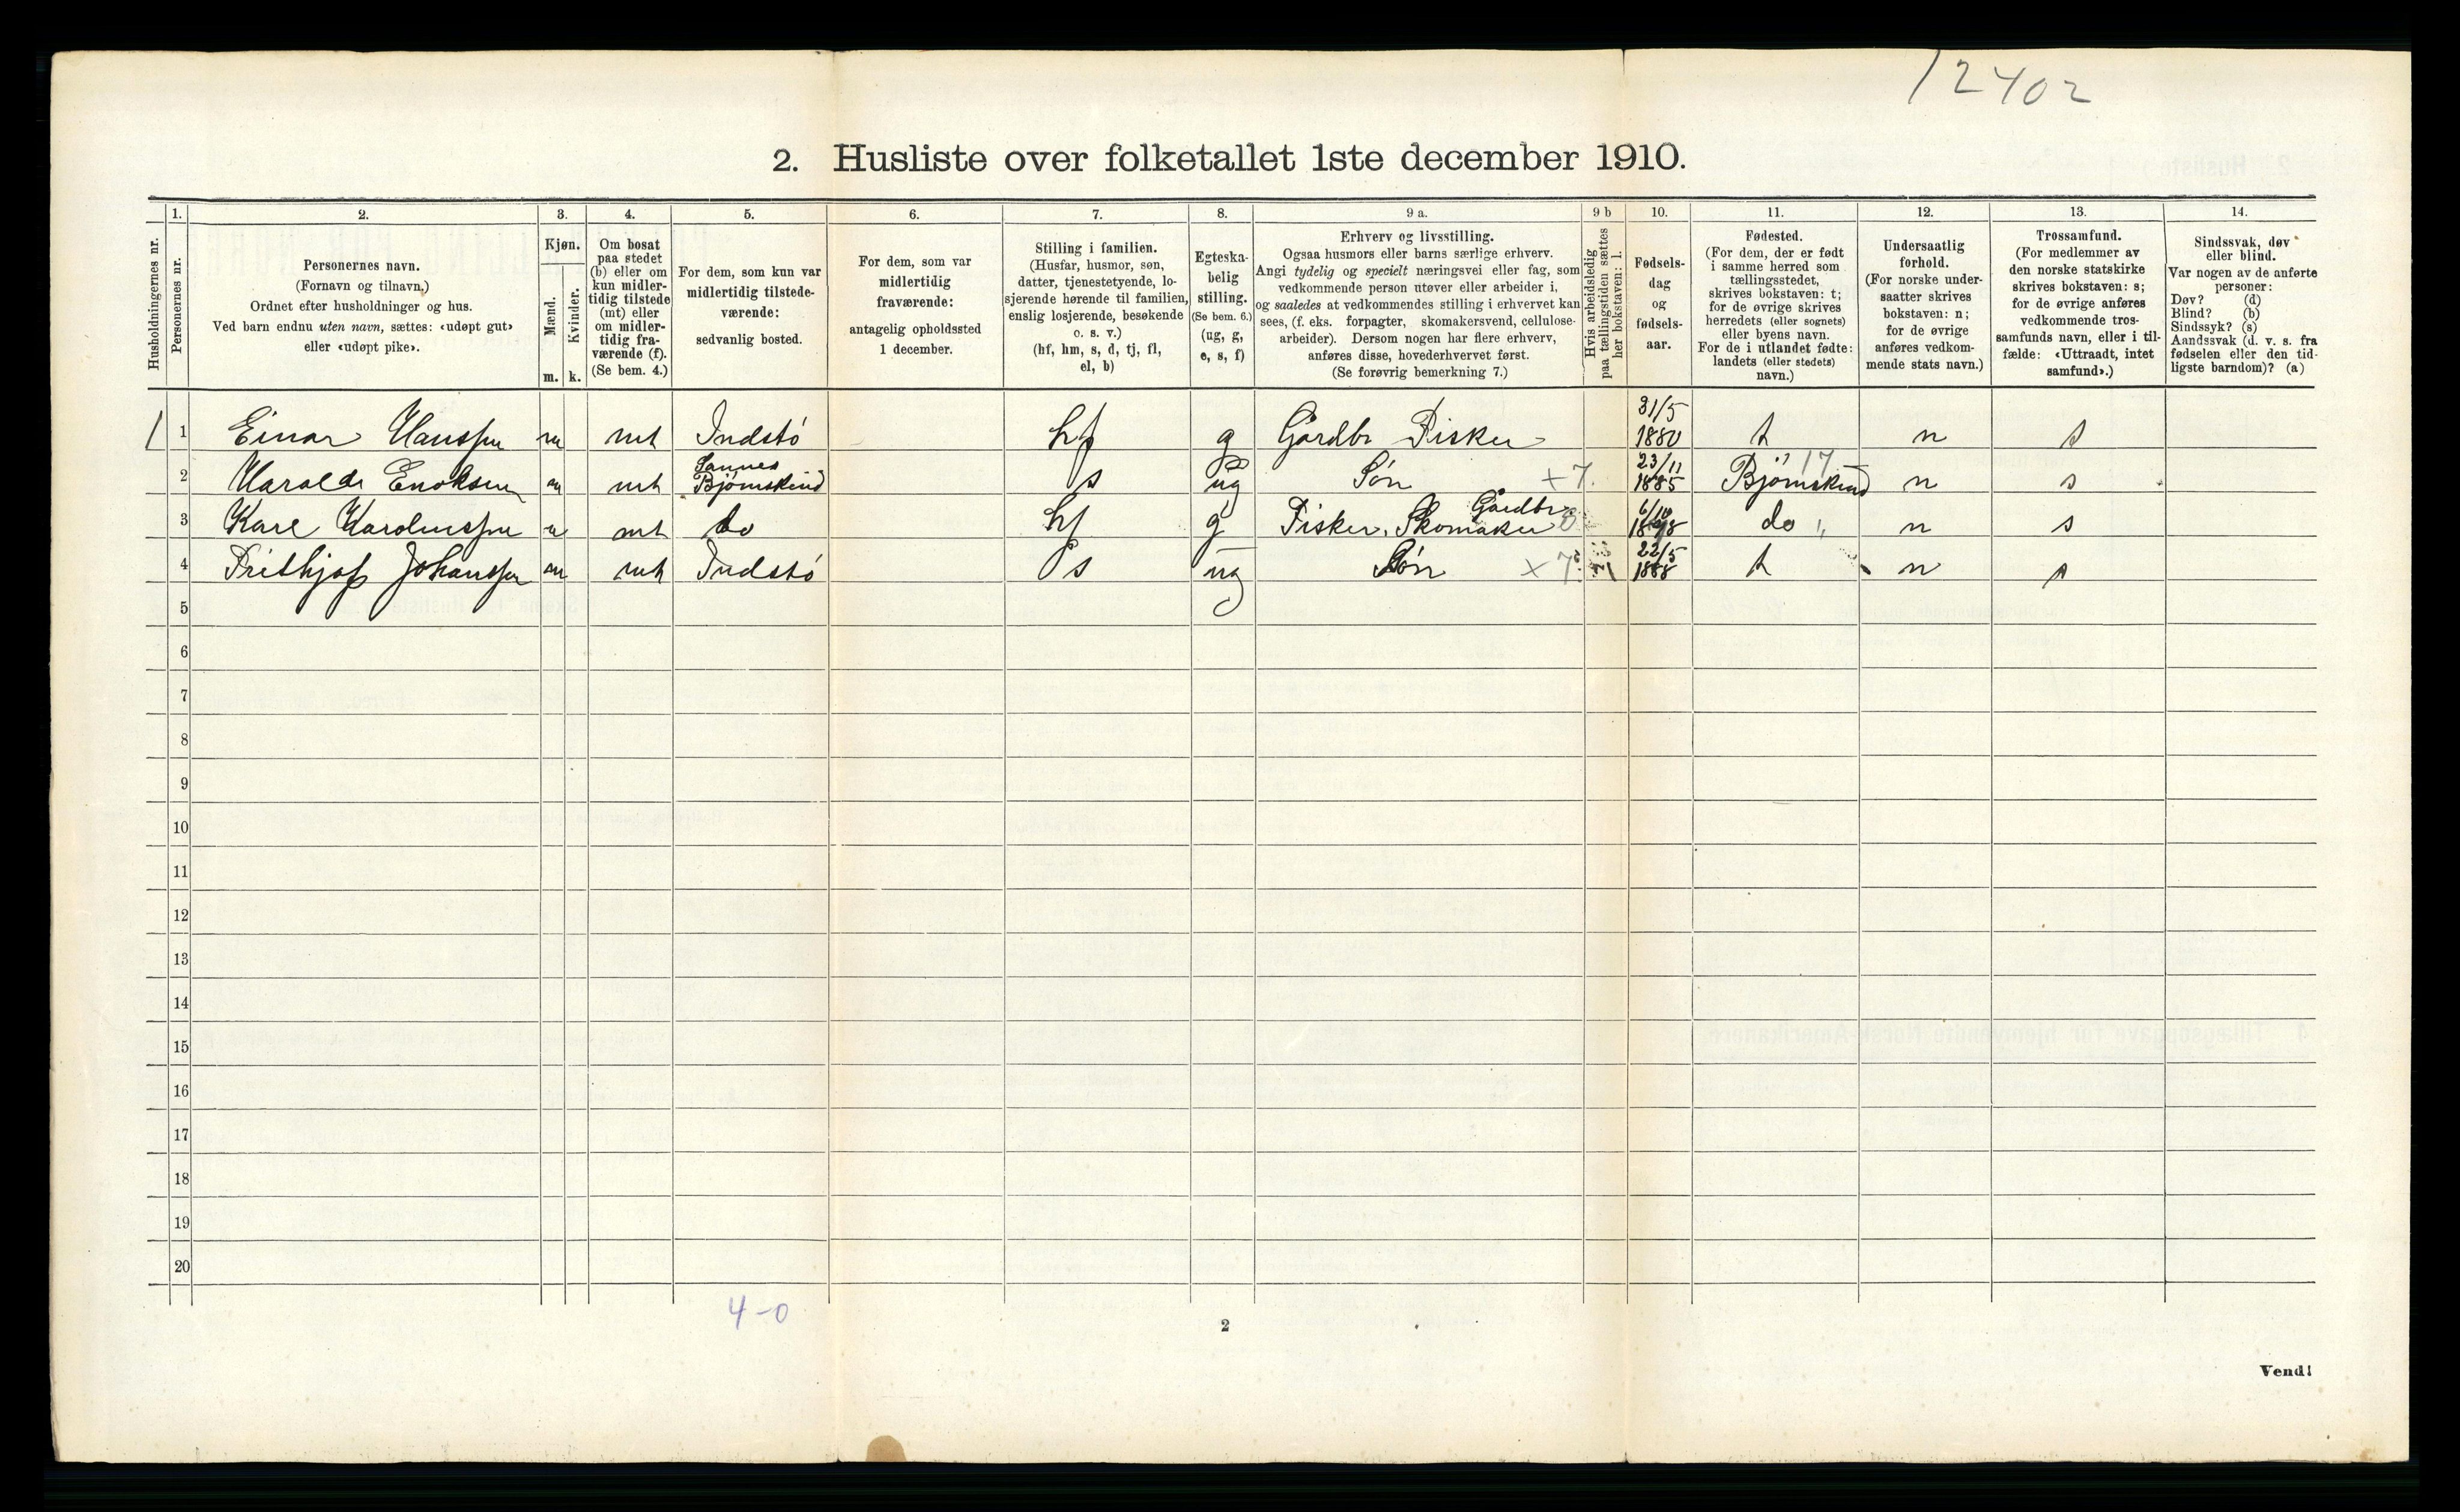 12402
2. Husliste over folketallet 1ste december 1910.
1. 2. 3. 4. 5. 6. 7. 8. 9 a. 9 b 10. 11. 12. 13. 14.
Husholdningernes nr.
Personernes nr.
Personernes navn.
(Fornavn og tilnavn.)
Ordnet efter husholdninger og hus.
Ved barn endnu uten navn, sættes: «udøpt gut»
eller «udøpt pike».
Kjøn.
Mænd.
Kvinder.
m. k.
Om bosat
paa stedet
(b) eller om
kun midler-
tidig tilstede
(mt) eller
om midler-
tidig fra-
værende (f).
(Se bem. 4.)
For dem, som kun var
midlertidig tilstede-
værende:
sedvanlig bosted.
For dem, som var
midlertidig
fraværende:
antagelig opholdssted
1 december.
Stilling i familien.
(Husfar, husmor, søn,
datter, tjenestetyende, lo-
sjerende hørende til familien,
enslig losjerende, besøkende
o. s. v.)
(hf, hm, s, d, tj, fl,
el, b)
Egteska-
belig
stilling.
(Se bem. 6.)
(ug, g,
e, s, f)
Erhverv og livsstilling.
Ogsaa husmors eller barns særlige erhverv.
Angi tydelig og specielt næringsvei eller fag, som
vedkommende person utøver eller arbeider i,
og saaledes at vedkommendes stilling i erhvervet kan
sees, (f. eks. forpagter, skomakersvend, cellulose-
arbeider). Dersom nogen har flere erhverv,
anføres disse, hovederhvervet først.
(Se forøvrig bemerkning 7.)
Hvis arbeidsledig
paa tællingstiden sættes
her bokstaven: l.
Fødsels-
dag
og
fødsels-
aar.
Fødested.
(For dem, der er født
i samme herred som
tællingsstedet,
skrives bokstaven: t;
for de øvrige skrives
herredets (eller sognets)
eller byens navn.
For de i utlandet fødte:
landets (eller stedets)
navn.)
Undersaatlig
forhold.
(For norske under-
saatter skrives
bokstaven: n;
for de øvrige
anføres vedkom-
mende stats navn.)
Trossamfund.
(For medlemmer av
den norske statskirke
skrives bokstaven: s;
for de øvrige anføres
vedkommende tros-
samfunds navn, eller i til-
fælde: «Uttraadt, intet
samfund».)
Sindssvak, døv
eller blind.
Var nogen av de anførte
personer:
Døv? (d)
Blind? (b)
Sindssyk? (s)
Aandssvak (d. v. s. fra
fødselen eller den tid-
ligste barndom)? (a)
1 1 Einar Hanssen m mt Indstó hf g Gårdbr Fisker 31/5 1880 t n s
2 Harald Enoksen m mt Sannes Bjørnskind s ug Søn x 7. 23/11 1885 Bjørnskind 17 n s
3 Karl Karolinssen m mt do hf g Fisker, Skomaker Gårdbr 6/10 do " n s
4 Frithjof Johanssen m mt Indstó s ug Søn x 7 22/5 1888 t n s
5
6
7
8
9
10
11
12
13
14
15
16
17
18
19
20
4-0
2
Vend!